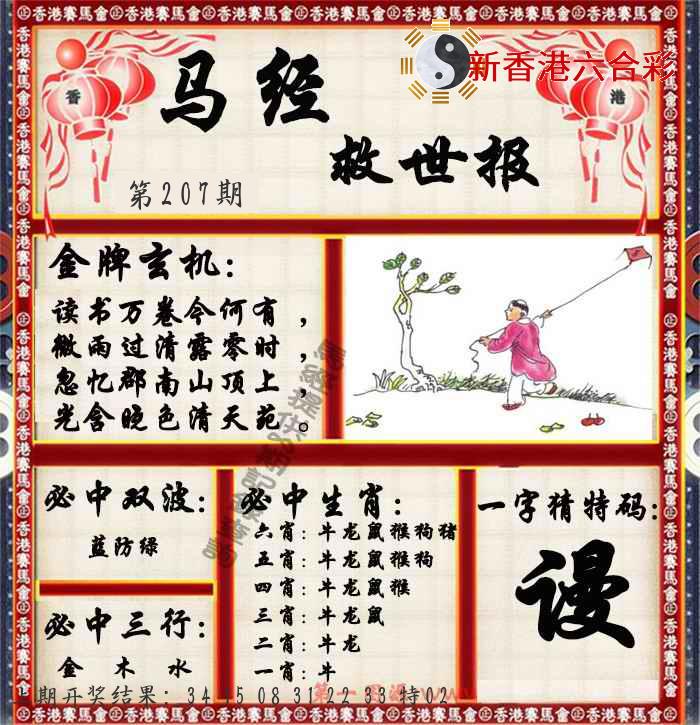 新香港六合彩
香
港
马经
救世报
第207期
金牌玄机：
读书万卷今何有，
微雨过清露零时，
忽忆郡南山顶上，
光含晚色清天苑。
必中双波：
蓝防绿
必中三行：
金 木 水
必中生肖：
六肖：牛龙鼠猴狗猪
五肖：牛龙鼠猴狗
四肖：牛龙鼠猴
三肖：牛龙鼠
二肖：牛龙
一肖：牛
一字猜特码：
谩
期开奖结果：34 45 08 31 22 33 特02
香港賽馬會